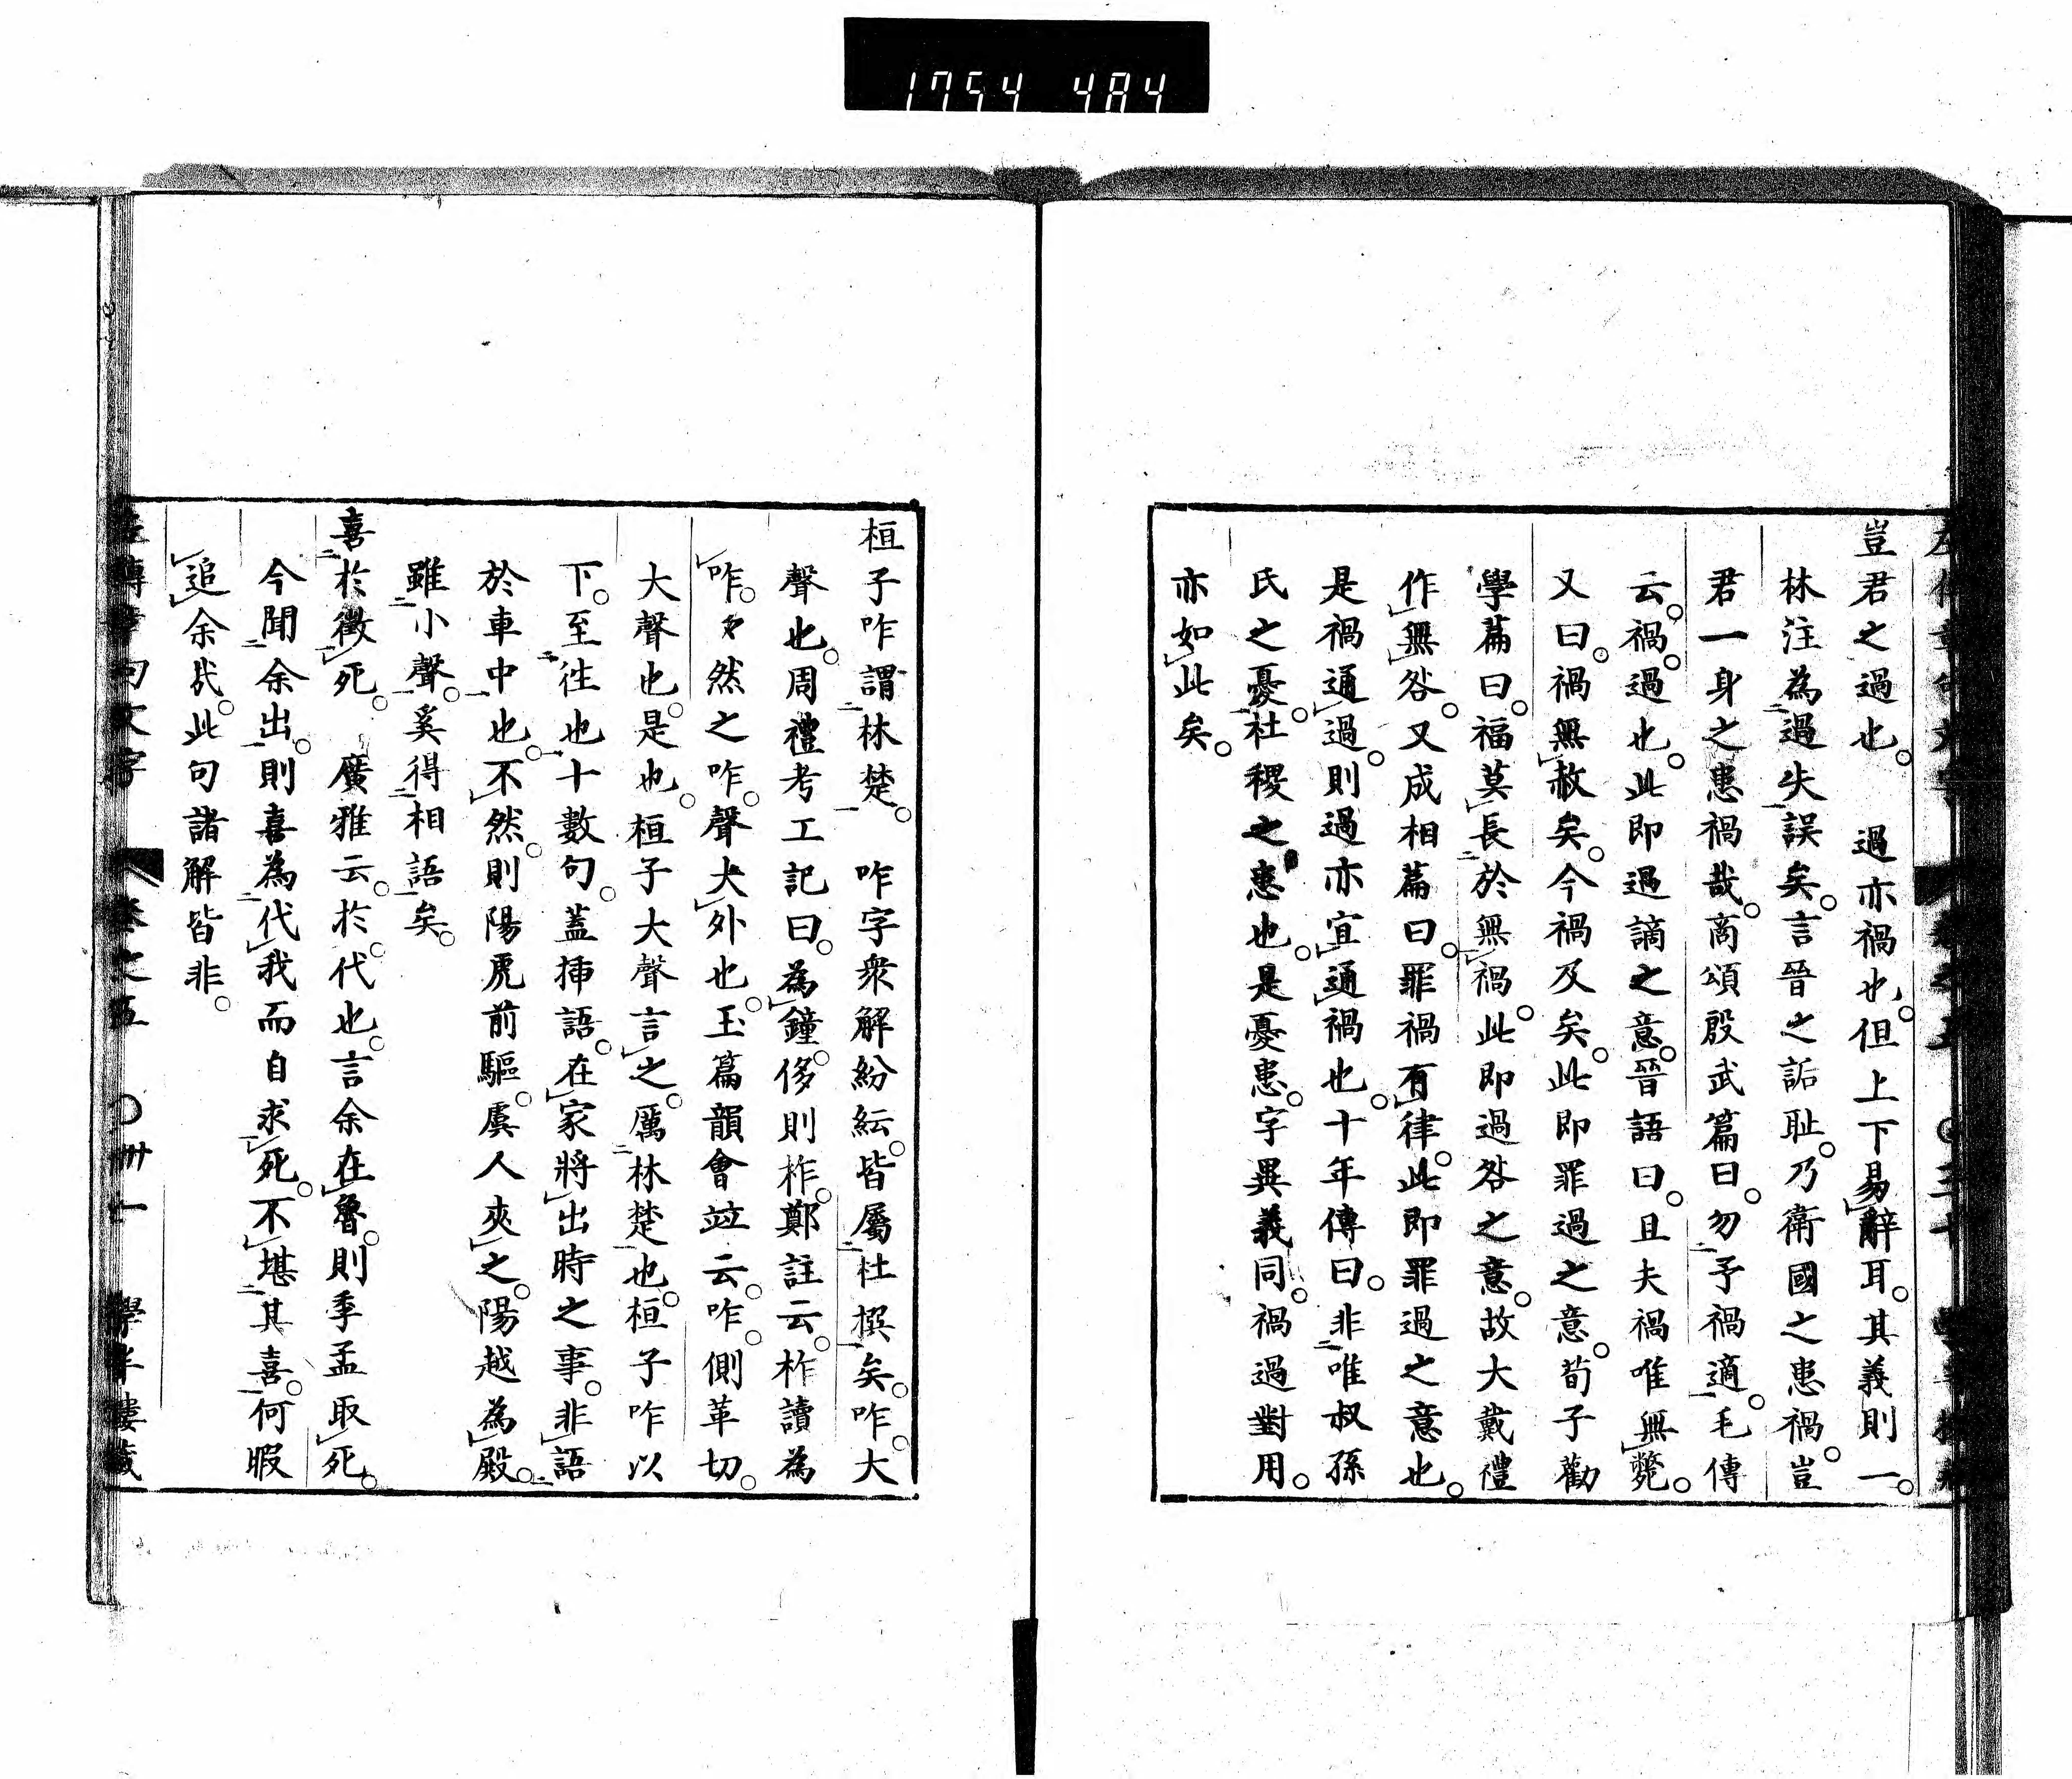 1754 484
豈君之過也。過亦禍也。但上下易辭耳。其義則一。
林注為過失誤矣。言晉之詬恥。乃衛國之患禍。豈
君一身之患禍哉。商頌殷武篇曰。勿予禍適。毛傳
云。禍。過也。此即過謫之意。晉語曰。且夫禍唯無斃。
又曰。禍無赦矣。今禍及矣。此即罪過之意。荀子勸
學篇曰。福莫長於無禍。此即過咎之意。故大戴禮
作無咎。又成相篇曰。罪禍有律。此即罪過之意也。
是禍通過。則過亦宜通禍也。十年傳曰。非唯叔孫
氏之憂。社稷之患也。是憂患。字異義同。禍過對用。
亦如此矣。
桓子咋謂林楚。咋字衆解紛紜。皆屬杜撰矣。咋。大
聲也。周禮考工記曰。為鐘。侈則柞。鄭註云。柞讀為
咋。咋然之咋。聲大外也。玉篇韻會竝云。咋。側革切。
大聲也。是也。桓子大聲言之。厲林楚也。桓子咋以
下。至徃也十數句。蓋揷語。在家將出時之事。非語
於車中也。不然。則陽虎前驅。虞人夾之。陽越為殿。
雖小聲。奚得相語矣。
喜於徵死。廣雅云。於。代也。言余在魯。則季孟取死。
今聞余出。則喜為代我而自求死。不堪其喜。何暇
追余哉。此句諸解皆非。
左傳章句文字 卷之五 〇卅一 學半樓藏